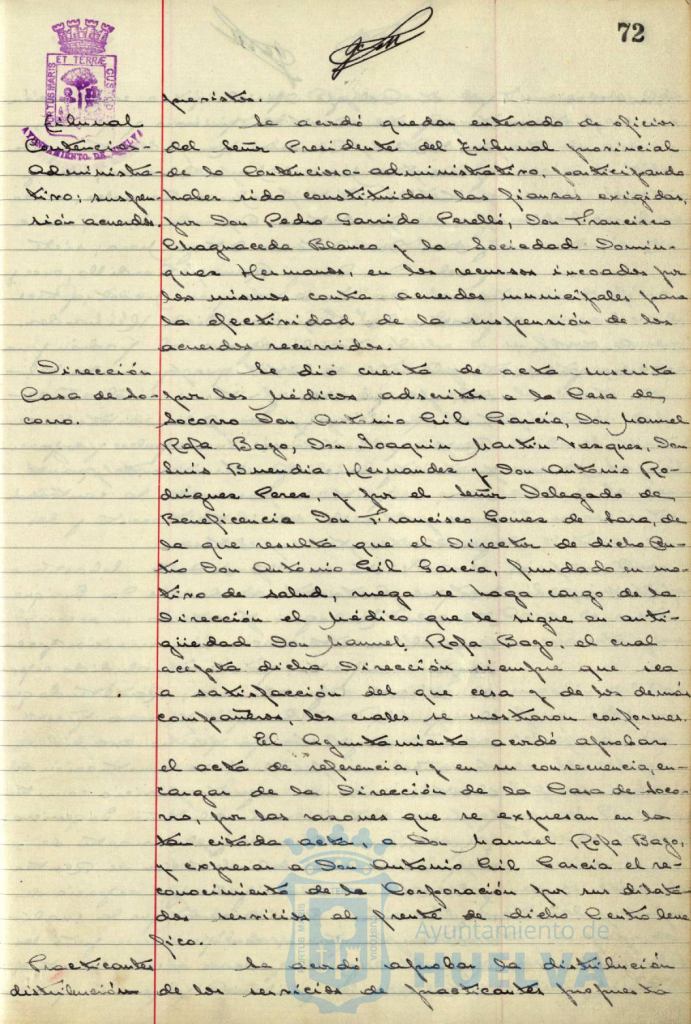 72
ET TERRÆ
AYUNTAMIENTO DE HUELVA
puestos.
Tribunal
Contencioso-
Administra-
tivo: suspen-
sión acuerdos.
Se acordó quedar enterado de oficios
del Señor Presidente del Tribunal provincial
de lo Contencioso-administrativo, participando
haber sido constituidas las fianzas exigidas,
por Don Pedro Garrido Perelló, Don Francisco
Chaguaceda Blanco y la Sociedad Domin-
guez Hermanos, en los recursos incoados por
los mismos contra acuerdos municipales para
la efectividad de la suspensión de los
acuerdos recurridos.
Dirección
Casa de So-
corro.
Se dió cuenta de acta suscrita
por los Médicos adscritos a la Casa de
Socorro Don Antonio Gil García, Don Manuel
Rofa Bago, Don Joaquin Martín Vazquez, Don
Luis Buendia Hernandez y Don Antonio Ro-
driguez Perez, y por el Señor Delegado de
Beneficencia Don Francisco Gomez de Lara, de
la que resulta que el Director de dicho Cen-
tro Don Antonio Gil García, fundado en mo-
tivo de salud, ruega se haga cargo de la
Dirección el Médico que le sigue en anti-
güedad Don Manuel Rofa Bago, el cual
acepta dicha Dirección siempre que sea
a satisfacción del que cesa y de los demás
compañeros, los cuales se mostraron conformes.
El Ayuntamiento acordó aprobar
el acta de referencia, y en su consecuencia, en-
cargar de la Dirección de la Casa de Soco-
rro, por las razones que se expresan en la
tan citada acta, a Don Manuel Rofa Bago,
y expresar a Don Antonio Gil García el re-
conocimiento de la Corporación por sus dilata-
dos servicios al frente de dicho Centro bené
fico.
Practicantes
distribución
Se acordó aprobar la distribución
de los servicios de practicantes propuesta
Ayuntamiento de
HUELVA